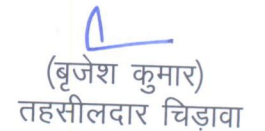 (बृजेश कुमार)
तहसीलदार चिड़ावा